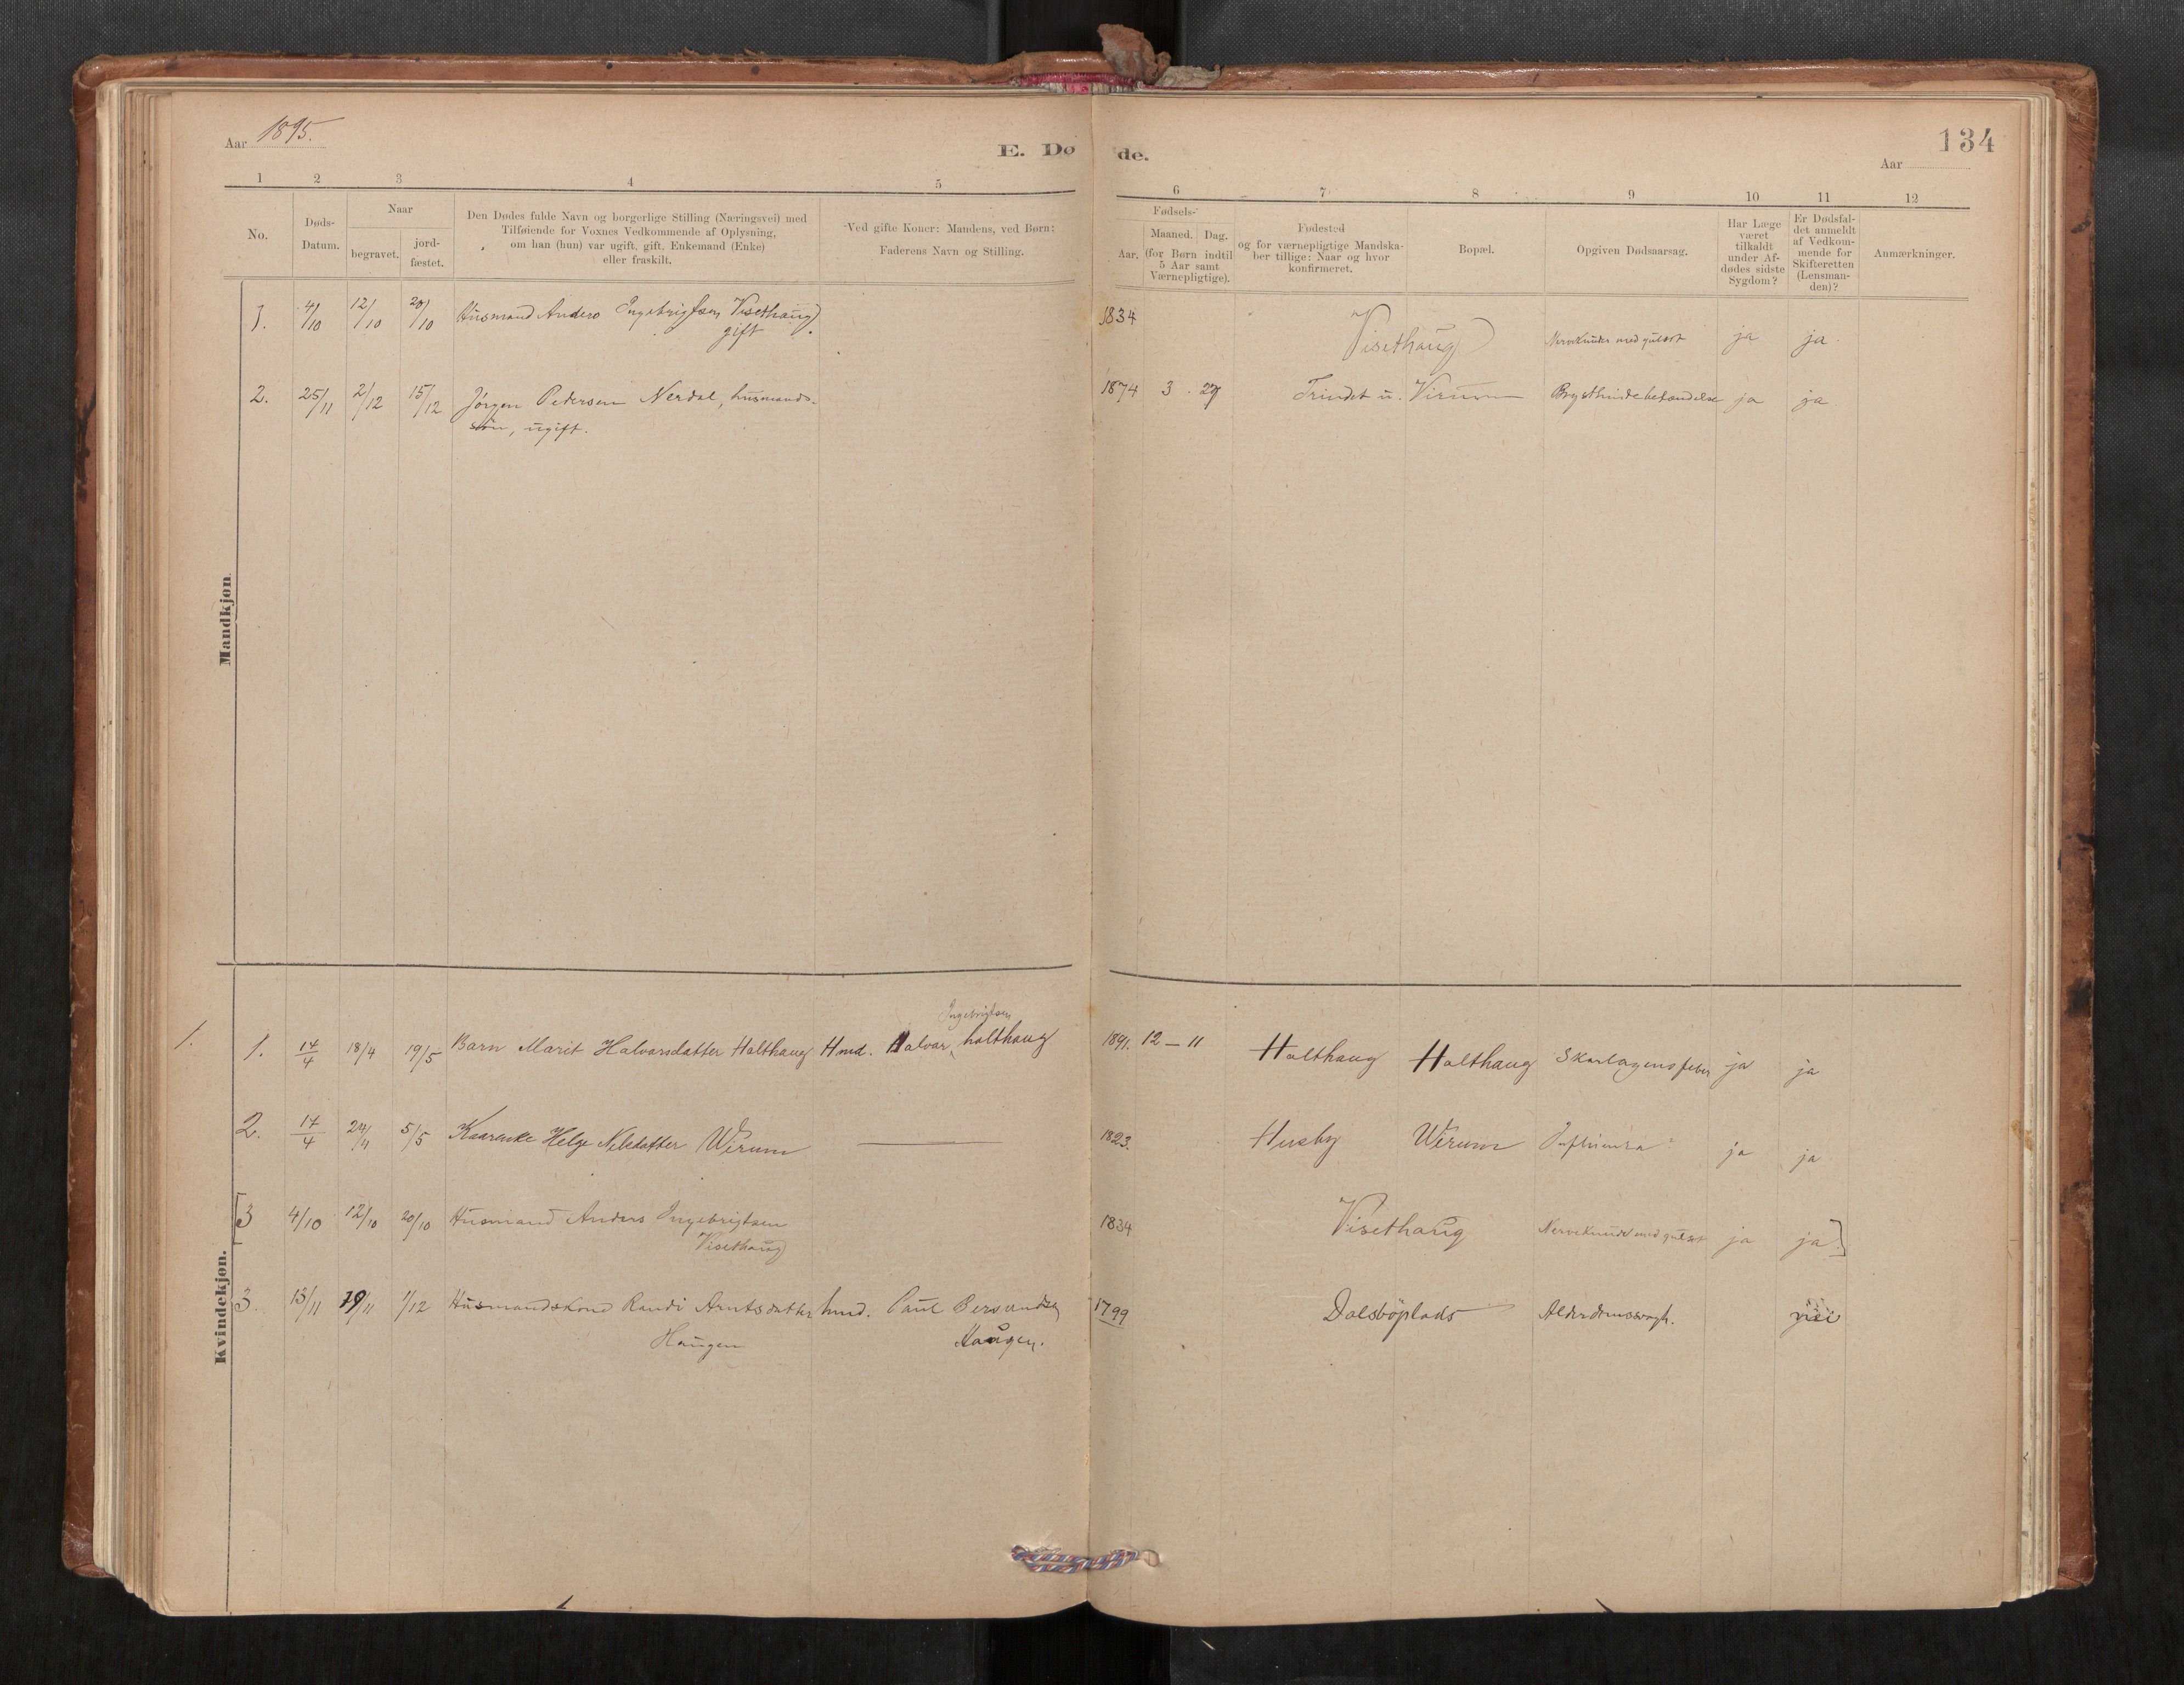 Aar 1895.
E. Døde.
134
Aar
1 2 3 4 5 6 7 8 9 10 11 12
No.
Døds-
Datum.
Naar
begravet.
jord-
fæstet.
Den Dødes fulde Navn og borgerlige Stilling (Næringsvei) med
Tilføiende for Voxnes Vedkommende af Oplysning,
om han (hun) var ugift, gift, Enkemand (Enke)
eller fraskilt.
Ved gifte Koner: Mandens, ved Børn:
Faderens Navn og Stilling.
Fødsels-
Aar.
Maaned. Dag.
(for Børn indtil
5 Aar samt
Værnepligtige).
Fødested
og for værnepligtige Mandska-
ber tillige: Naar og hvor
konfirmeret.
Bopæl.
Opgiven Dødsaarsag.
Har Læge
været
tilkaldt
under Af-
dødes sidste
Sygdom?
Er Dødsfal-
det anmeldt
af Vedkom-
mende for
Skifteretten
(Lensman-
den)?
Anmærkninger.
Mandkjøn
1. 4/10 12/10 20/10 Husmand Anders Ingebrigtsen Visethaug 1834
gift.
Visethaug med gulsot ja ja.
2. 25/11 2/12 15/12 Jörgen Pedersen Nerdal, husmands- 1874 3 27 Trindet u. Virum Brysthindebetændelse ja ja
sön, ugift.
Kvindekjøn.
Ingebrigtsen
1. 1. 14/4 18/4 19/5 Barn Marit Halvorsdatter Holthaug Hmd. Halvor holthaug 1891. 12 – 11 Holthaug Holthaug Skarlagensfeber ja ja
2. 17/4 24/4 5/5 Kaarenke Helge Nilsdatter Wirum — 1823. Husby Wirum Influenza ja ja
[3 4/10 12/10 20/10 Husmand Anders Ingebrigtsen 1834 Visethaug med gulsot ja ja.]
Visethaug
3. 13/11 19/11 1/12 Husmandskone Randi Arntsdatter hmd. Paul Bersvendsen 1799 Dalsböplads Alderdomssvagh.
Haugen Haugen.